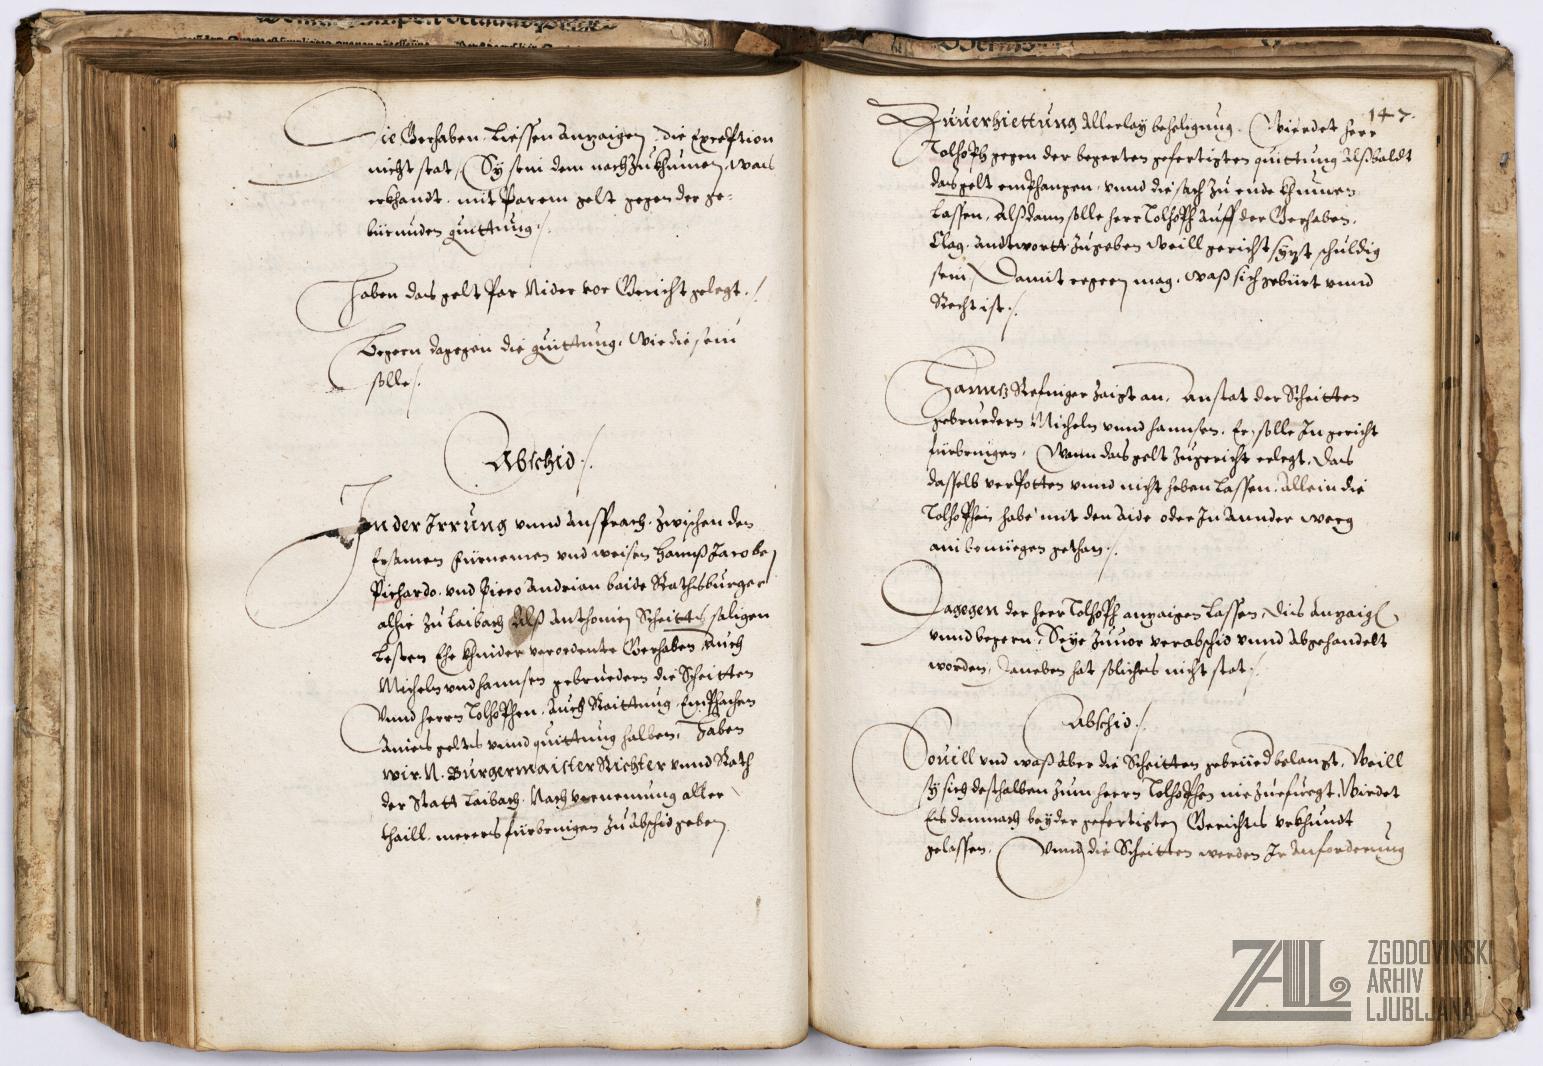 Die Gerhaben liessen anzaigen, die Exception
nicht stat, Sy sein dem nachzukhumen, was
erkhandt, mit Parem gelt gegen der ge-
bürunden quittung /.
Haben das gelt Par Nider vor Gericht gelegt. /.
Begern dagegen die quittung, wie die sein
solle /.
Abschid /.
In der Irrung vnnd Ansprach, zwischen den
Ersamen fürnemen vnd weisen Hannß Jacoben
Pichardo, vnd Piero Andrian baide Rathsburger
alhie zu Laibach Alß Anthonien Scheitts saligen
lesten Ehe khinder verordente Gerhaben, auch
Micheln vnd Hannsen gebruedern die Scheitten
Vnnd herrn Tolhophen, auch Raittung, Emphachen
Aines gelts vnnd quittung halben, Haben
wir N. Burgermaister Richter vnnd Rath
der Statt Laibach, Nach vernemung aller
thaill merers fürbringen zu Abschid geben
147.
Zuuerhiettung Allerlay beheligung. Wierdet herr
Tolhoph gegen der begerten gefertigten quittung Alßbaldt
das gelt emphangen, vnnd die sach zu ende khumen
lassen, Alßdann solle herr Tolhoph auff der Gerhaben,
Clag, Andtwortt zugeben weill gericht schuldig
sein, Damit ergeen mag, was sich gebürt vnnd
Recht ist /.
Hannß Refinger zaigt an, anstat der Scheitten
gebruedern Micheln vnnd Hannsen, Er solle In gericht
fürbringen, Wann das gelt zugericht erlegt, das
dasselb verpotten vnnd nicht heben lassen, Allein die
Tolhophin habe mit den Aide oder In Annder weeg
ain benüegen gethan /.
Dagegen der herr Tolhoph anzaigen lassen, dis Anzaigen
vnnd begern, Seye zuuor verabschid vnnd abgehandelt
worden, Daneben hat solliches nicht stat /.
Abschid /.
Souill vnd was Aber die Scheitten gebrüed belangt, Weill
sy sich desthalben zum herrn Tolhophen nie zuefuegt, Wirdet
Es demnach bey der gefertigten Gerichts vrkhundt
gelassen, Vnnd die Scheitten werden Ir Anforderung
ZAL
ZGODOVINSKI
ARHIV
LJUBLJANA